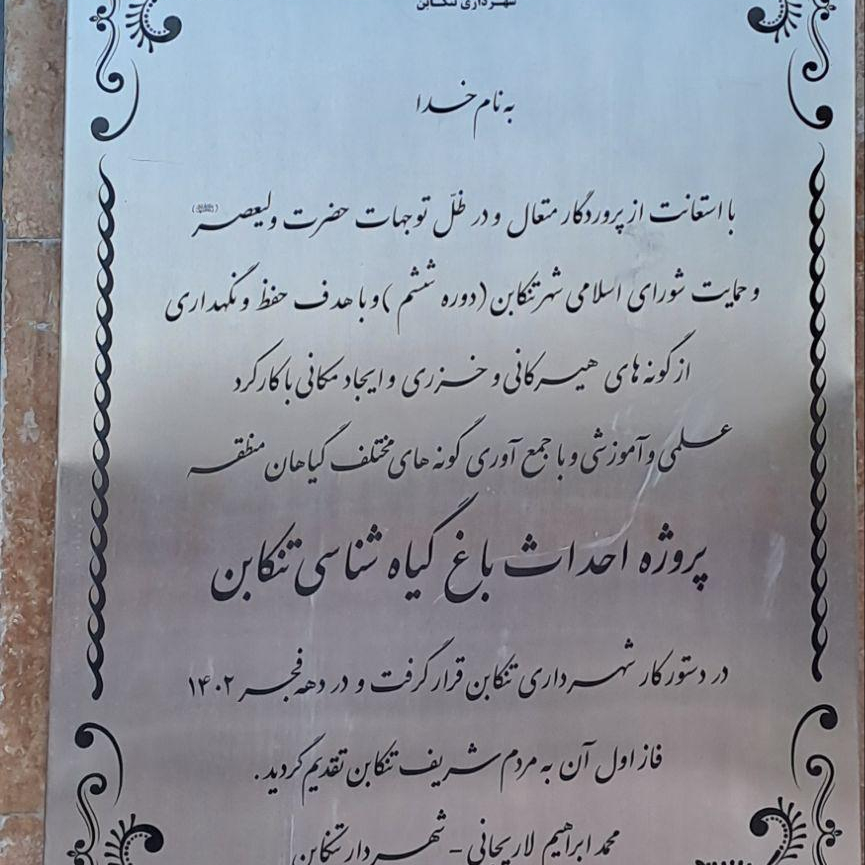 شهرداری تنکابن
به نام خدا
با استعانت از پروردگار متعال و در ظلّ توجهات حضرت ولیعصر
و حمایت شورای اسلامی شهر تنکابن (دوره ششم) و با هدف حفظ و نگهداری
از گونه های هیرکانی و خزری و ایجاد مکانی با کارکرد
علمی و آموزشی و با جمع آوری گونه های مختلف گیاهان منطقه
پروژه احداث باغ گیاه شناسی تنکابن
در دستور کار شهرداری تنکابن قرار گرفت و در دهه فجر ۱۴۰۲
فاز اول آن به مردم شریف تنکابن تقدیم گردید.
محمد ابراهیم لاریجانی - شهردار تنکابن